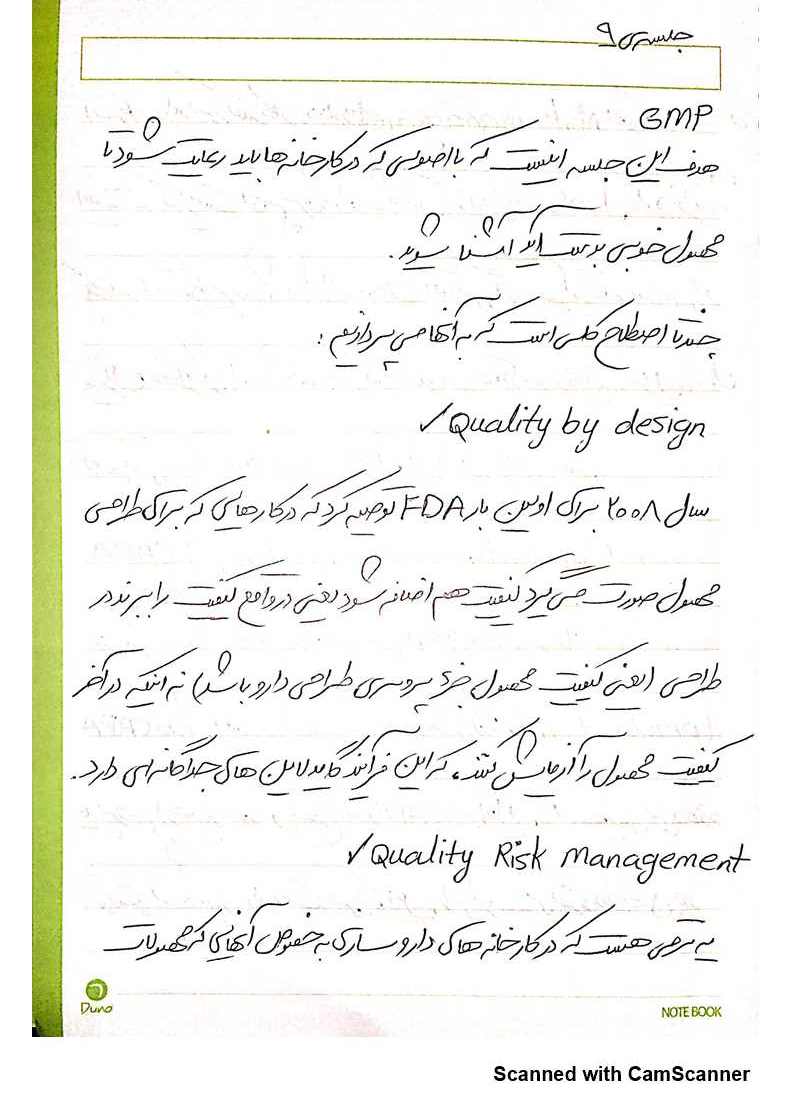 جلسه‌ی ۹
GMP
هدف این جلسه اینست که با اصولی که در کارخانه ها باید رعایت شود تا
محصول خوبی بدست آید آشنا شوید.
چندتا اصطلاح کلی است که به آنها می پردازیم :
✓Quality by design
سال ۲۰۰۸ برای اولین بار FDA توصیه کرد که در کارهایی که برای طراحی
محصول صورت می گیرد کیفیت هم اضافه شود یعنی در واقع کیفیت را ببرند در
طراحی (یعنی کیفیت محصول جزء پروسه‌ی طراحی دارو باشد) نه اینکه در آخر
کیفیت محصول را آزمایش کنند، که این فرآیند گایدلاین های جداگانه ای دارد.
✓Quality Risk management
یه ترمی هست که در کارخانه های داروسازی به خصوص آنهایی که محصولات
Duno
NOTE BOOK
Scanned with CamScanner